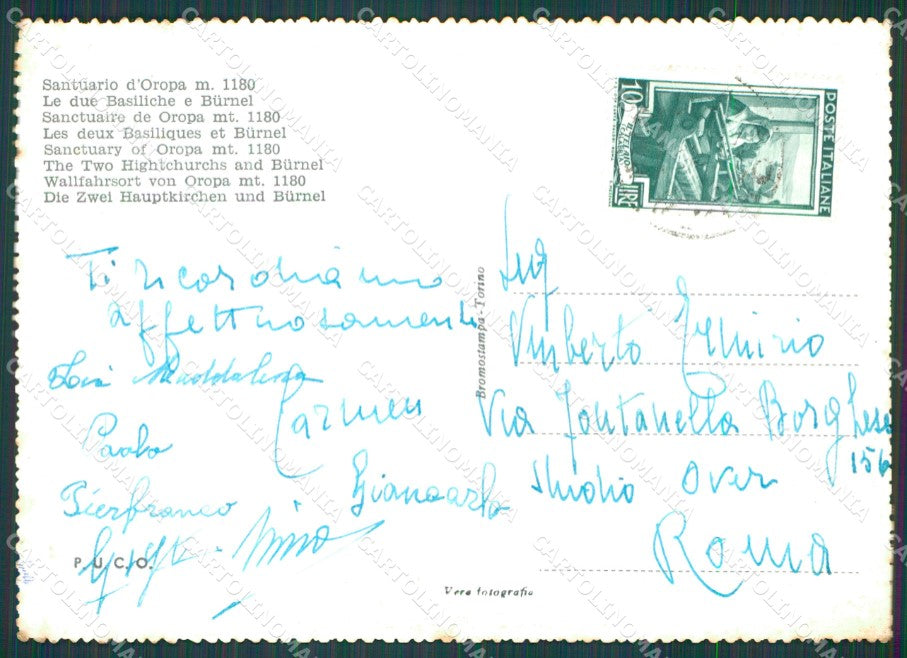 Santuario d'Oropa m. 1180
Le due Basiliche e Bürnel
Sanctuaire de Oropa mt. 1180
Les deux Basiliques et Bürnel
Sanctuary of Oropa mt. 1180
The Two Hightchurchs and Bürnel
Wallfahrsort von Oropa mt. 1180
Die Zwei Hauptkirchen und Bürnel
10
LIRE
POSTE ITALIANE
Ti ricordiamo
affettuosamente
Zia Maddalena
Carmen
Paolo
Pierfranco
Giancarlo
Nino
P.U.C.O.
Bromostampa - Torino
Vera fotografia
Umberto
Via Fontanella Borghese
156
Studio Over
Roma
CARTOLINOMANIA